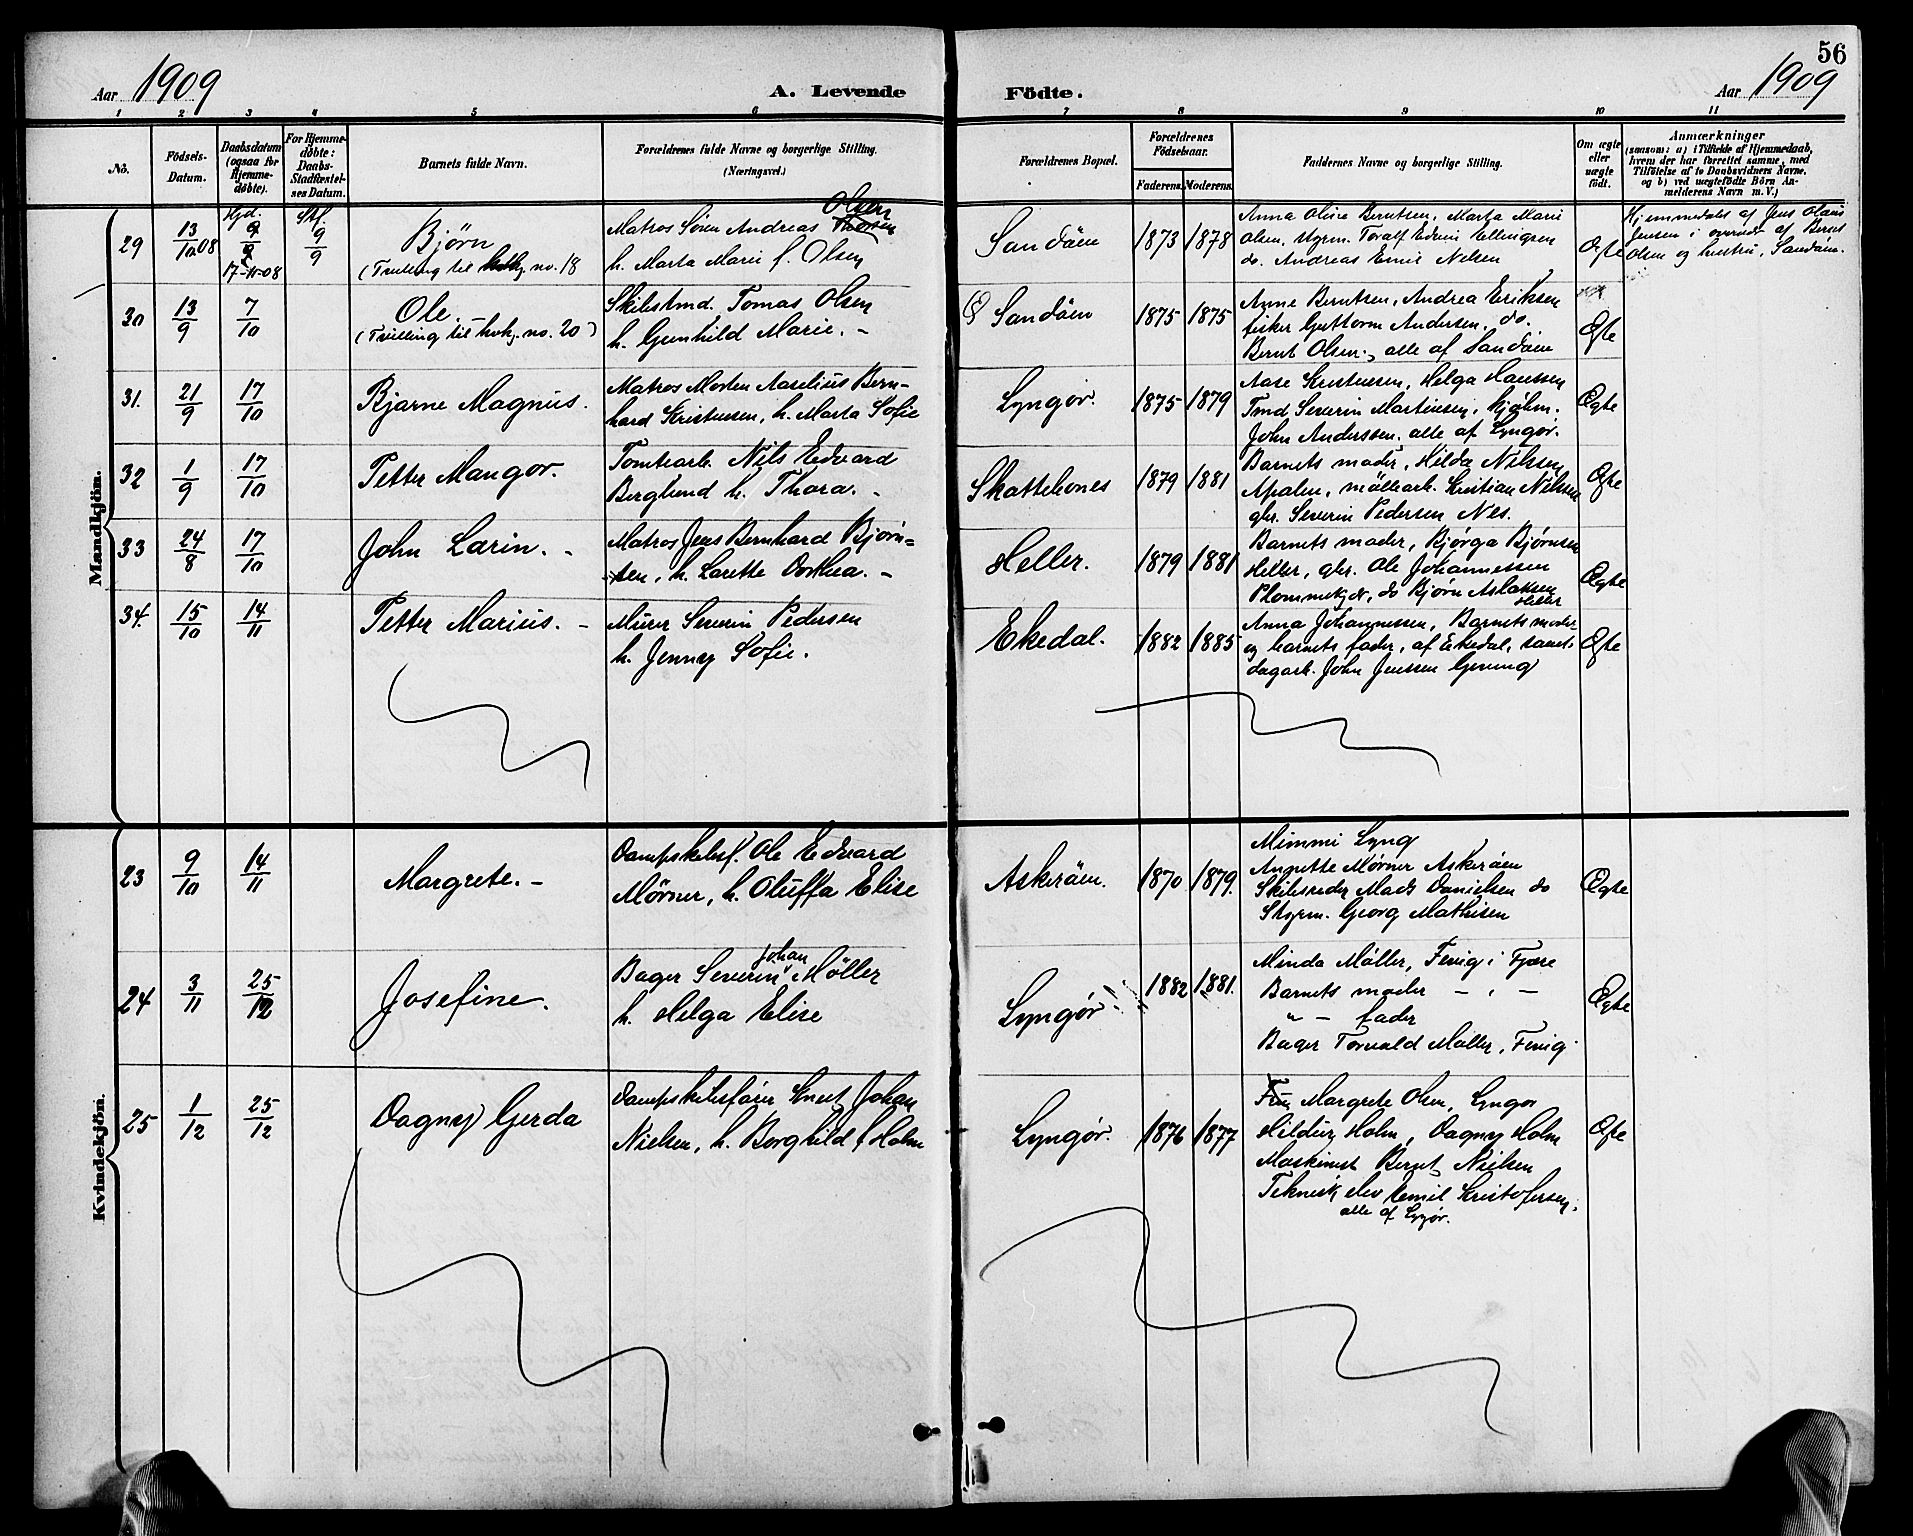 56
Aar 1909
A. Levende
Födte.
Aar 1909
1 2 3 4 5 6 7 8 9 10 11
No.
Födsels-Datum.
Daabsdatum (ogsaa for Hjemme-döbte).
For Hjemme-döbte: Daabs-Stadfæstel-ses Datum.
Barnets fulde Navn.
Forældrenes fulde Navne og borgerlige Stilling.
(Næringsvei.)
Forældrenes Bopæl.
Forældrenes Födselsaar.
Faderens. Moderens.
Faddernes Navne og borgerlige Stilling.
Om ægte eller uægte födt.
Anmærkninger
(saasom: a) i Tilfælde af Hjemmedaab,
hvem der har forrettet samme, med
Tilföielse af to Daabsvidners Navne.
og b) ved uægtefödte Börn An-
melderens Navn m. V.)
Mandkjön.
29
13/10 08
Hjd.
17-11-08
Stf.
9/9
Bjørn
(Tvilling til kvkj. no. 18
Matros Søren Andreas Thorsen Olsen
h. Marta Marie f. Olsen
Sandöen
1873 1878
Anna Oline Berntsen, Marta Marie
Olsen, styrm. Toralf Edvin Ellingsen
do. Andreas Emil Nelsen
Ægte
Hjemmedøbt af Jens Olaus
Jensen i overvær af Bernt
Olsen og hustru, Sandöen.
30
13/9
7/10
Ole.
(Tvilling til kvkj. no. 20)
Skibstmd. Tomas Olsen
h. Gunhild Marie. -
Sandöen
1875 1875
Anne Berntsen, Andrea Eriksen
fisker Guttorm Andersen, do.
Bernt Olsen, alle af Sandöen
Ægte
31.
21/9
17/10
Bjarne Magnus.
Matros Morten Aorelius Bern-
hard Kristensen, h. Marta Sofie
Lyngør.
1875 1879
Aase Kristensen, Helga Hanssen
Tmd Severin Martinsen, Kjøbm.
John Anderssen, alle af Lyngør.
Ægte
32
1/9
17/10
Petter Mangor.
Tomtearb. Nils Edvard
Berglund h. Thora. -
Skottebones
1879 1881
Barnets moder, Hilda Nilssen
Apalen, møllearb. Kristian Nilsen
gbr. Severin Pedersen Nes.
Ægte
33
24/8
17/10
John Larin. -
Matros Jens Bernhard Bjørn=
sen, h. Lorette Dorthea. -
Heller.
1879 1881
Barnets moder, Bjørga Bjørnsen
Heller, gbr. Ole Johannessen
Plommekjær, do Bjørn Aslaksen
Heller
Ægte
34.
15/10
14/11
Petter Marius. -
Murer Severin Pedersen
h. Jenny Sofie.
Ekedal.
1882 1885
Anna Johannessen, Barnets moder
og barnets fader, af Ekedal, samt
dagarb. John Jenssen Gjeving
Ægte
Kvindekjön.
23
9/10
14/11
Margrete. -
Dampskibsf. Ole Edvard
Mörner, h. Oluffa Elise
Askeröen.
1870 1879.
Mimmi Lyng
Angrette Mørner Askeröen
Skibsreder Mads Danielsen do
Styrm. Georg Mathisen
Ægte
24
3/11
25/12
Josefine.
Bager Severin Johan Möller
h. Helga Elise
Lyngør
1882 1881.
Minda Møller, Fevig i Fjære
Barnets moder - " -
" - fader
Bager Torvald Møller, Fevig.
Ægte
25
1/12
25/12
Dagny Gerda
Dampskibsfører Knut Johan
Nielsen, h. Borghild f Holm
Lyngør.
1876 1877
Fru Margrete Olsen, Lyngør
Hildur Holm, Dagny Holm
Maskinist Bernt Nielsen
Teknisk elev Emil Kristofersen,
alle af Lyngør.
Ægte